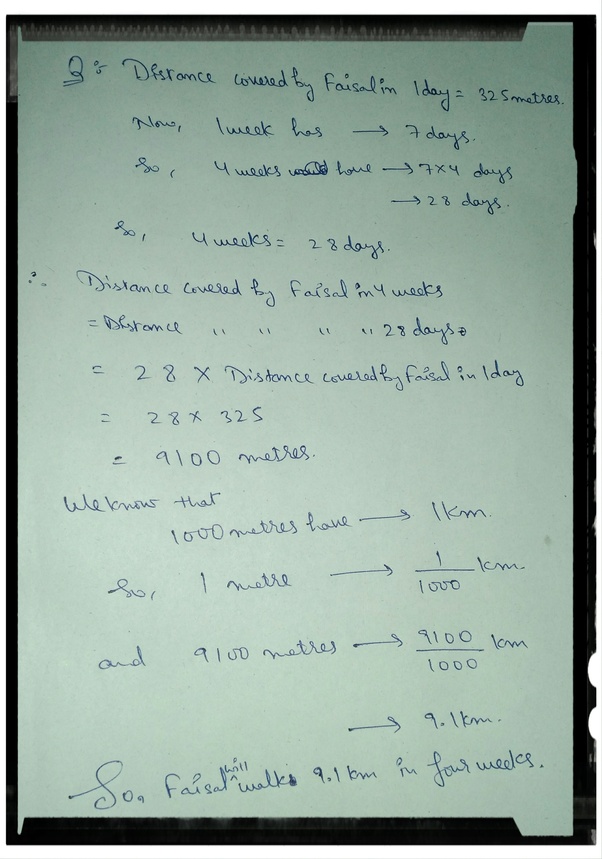 Q :- Distance covered by Faisal in 1 day = 325 metres.
Now, 1 week has → 7 days.
So, 4 weeks would have → 7×4 days
→ 28 days.
So, 4 weeks = 28 days.
∴ Distance covered by Faisal in 4 weeks
= Distance " " " " 28 days
= 28 × Distance covered by Faisal in 1 day
= 28 × 325
= 9100 metres.
We know that
1000 metres have → 1 km.
So, 1 metre → 1/1000 km
and 9100 metres → 9100/1000 km
→ 9.1 km.
So, Faisal will walk 9.1 km in four weeks.